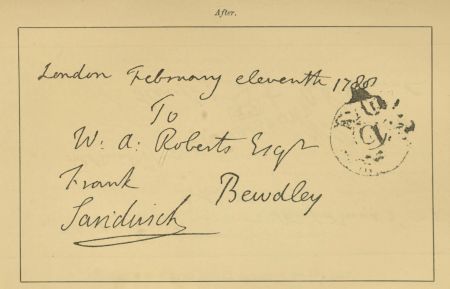 After.
London February eleventh 1788
To
W: A: Roberts Esqr
Bewdley
Frank
Sandwich